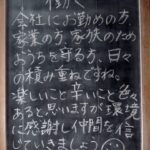 働く
会社にお勤めの方、
家業の方、家族のため
おうちを守る方、日々
の積み重ねですね。
楽しいこと辛いこと色々
あると思いますが環境
に感謝し仲間を信
じていきましょう